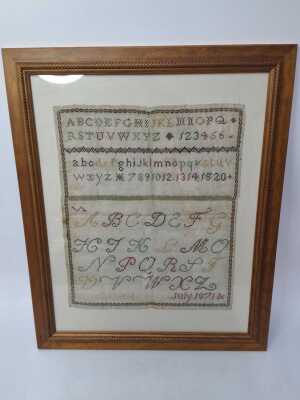 ABCDEFGHIJKLMNOPQ
RSTUVWXYZ 123456
abcdefghijklmnopqrstuv
wxyz 789101213141520
ABCDEFG
HIJKLMO
NPQRST
UVWXZ
July 1871